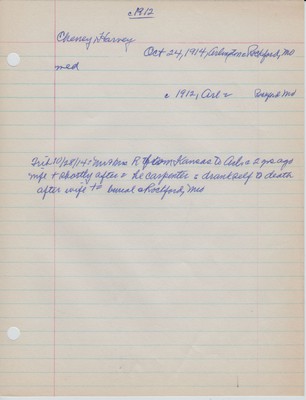 c1912
Cheney, Harvey
Oct 24, 1914, Arlington Rockford, Mo
med
c 1912, Arl
Fri 10/28/14: Mr & Mrs R from Kansas to Arl 2 yrs ago
wife + shortly after he carpenter drank self to death
after wife burial Rockford, Mo